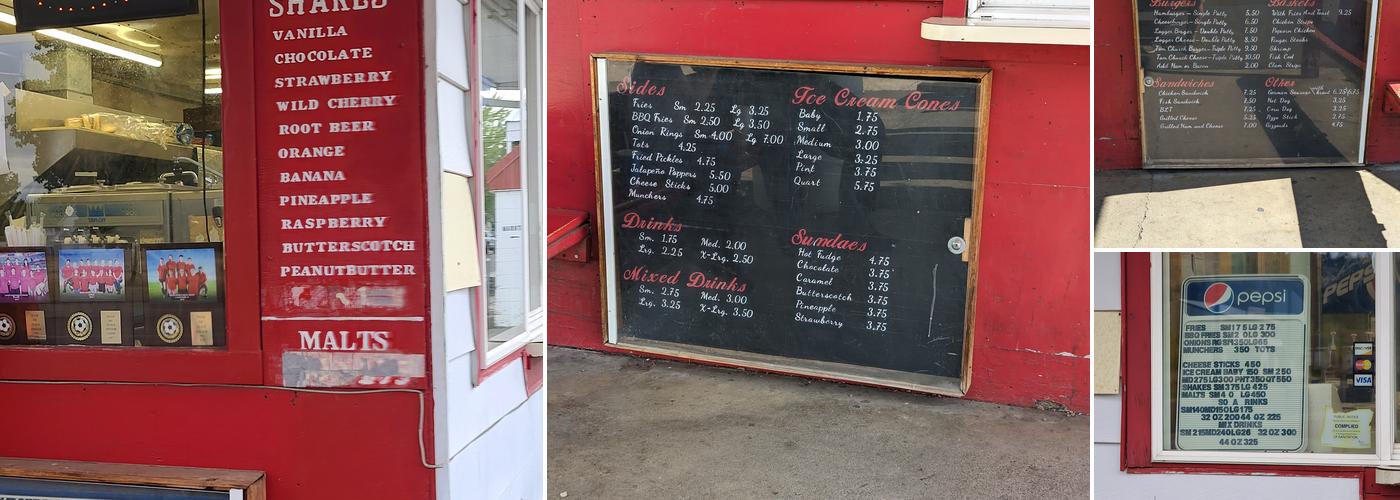 SHAKES
VANILLA
CHOCOLATE
STRAWBERRY
WILD CHERRY
ROOT BEER
ORANGE
BANANA
PINEAPPLE
RASPBERRY
BUTTERSCOTCH
PEANUTBUTTER
MALTS
Sides
Fries Sm 2.25 Lg 3.25
BBQ Fries Sm 2.50 Lg 3.50
Onion Rings Sm 4.00 Lg 7.00
Tots 4.25
Fried Pickles 4.75
Jalapeño Poppers 5.50
Cheese Sticks 5.00
Munchers 4.75
Drinks
Sm. 1.75 Med. 2.00
Lrg. 2.25 X-Lrg. 2.50
Mixed Drinks
Sm. 2.75 Med. 3.00
Lrg. 3.25 X-Lrg. 3.50
Ice Cream Cones
Baby 1.75
Small 2.75
Medium 3.00
Large 3.25
Pint 3.75
Quart 5.75
Sundaes
Hot Fudge 4.75
Chocolate 3.75
Caramel 3.75
Butterscotch 3.75
Pineapple 3.75
Strawberry 3.75
Burgers
Hamburger - Single Patty 5.50
Cheeseburger - Single Patty 6.50
Logger Burger - Double Patty 7.50
Logger Cheese - Double Patty 8.50
Tom Church Burger - Triple Patty 9.50
Tom Church Cheese - Triple Patty 10.50
Add Ham or Bacon 2.00
Baskets
With Fries And Toast 9.25
Chicken Strips
Popcorn Chicken
Finger Steaks
Shrimp
Fish Cod
Clam Strips
Sandwiches
Chicken Sandwich 7.25
Fish Sandwich 7.50
BLT 7.25
Grilled Cheese 5.25
Grilled Ham and Cheese 7.00
Other
German Sausage
Hot Dog 3.25
Corn Dog 3.25
Pizza Stick 2.75
Gizzards 4.75
pepsi
FRIES SM175LG275
BBQ FRIES SM2 0LG 300
ONIONS RGSM350LG65
MUNCHERS 350 TOTS
CHEESE STICKS 450
ICE CREAM BABY 150 SM 250
MD275LG300PNT350QT550
SHAKES SM375LG 425
MALTS SM4 0 LG450
SO A RINKS
SM140MD150LG175
32 OZ 200 44 OZ 225
MIX DRINKS
SM 215MD240LG26 32OZ 300
44 OZ 325
PEPSI
DISCOVER
VISA
COMPLIED